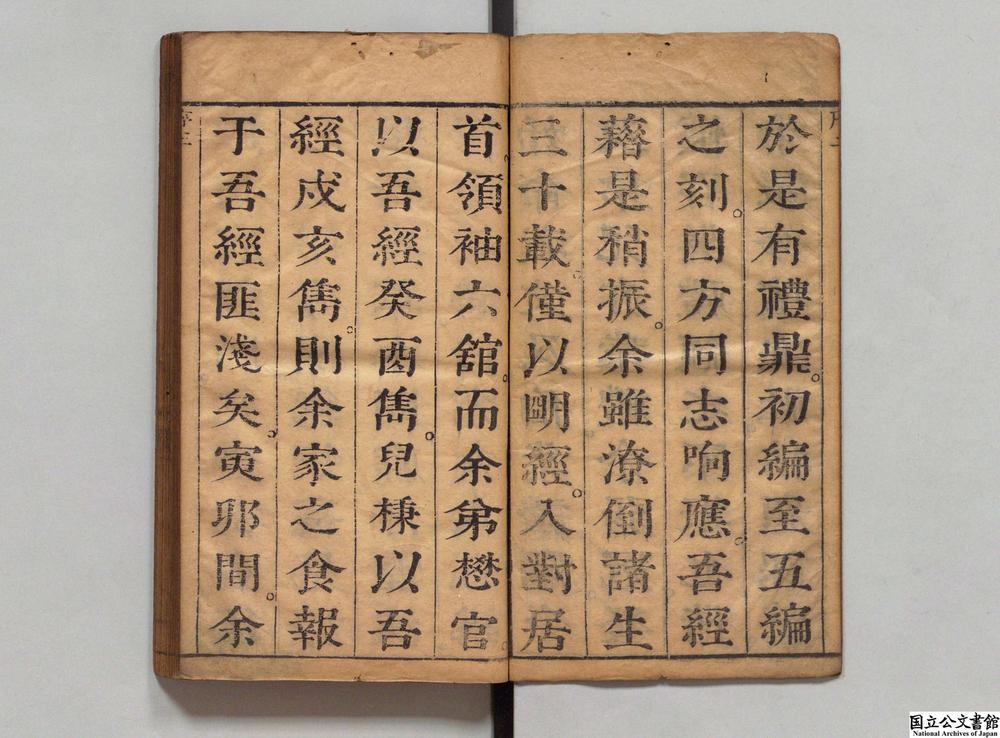 於是有禮鼎。初編至五編
之刻。四方同志响應。吾經
藉是稍振。余雖潦倒諸生
三十載。僅以明經。入對居
首。領袖六舘。而余弟懋官
以吾經癸酉雋。兒棟以吾
經戍亥雋。則余家之食報
于吾經匪淺矣。寅夘間。余
序三
国立公文書館
National Archives of Japan